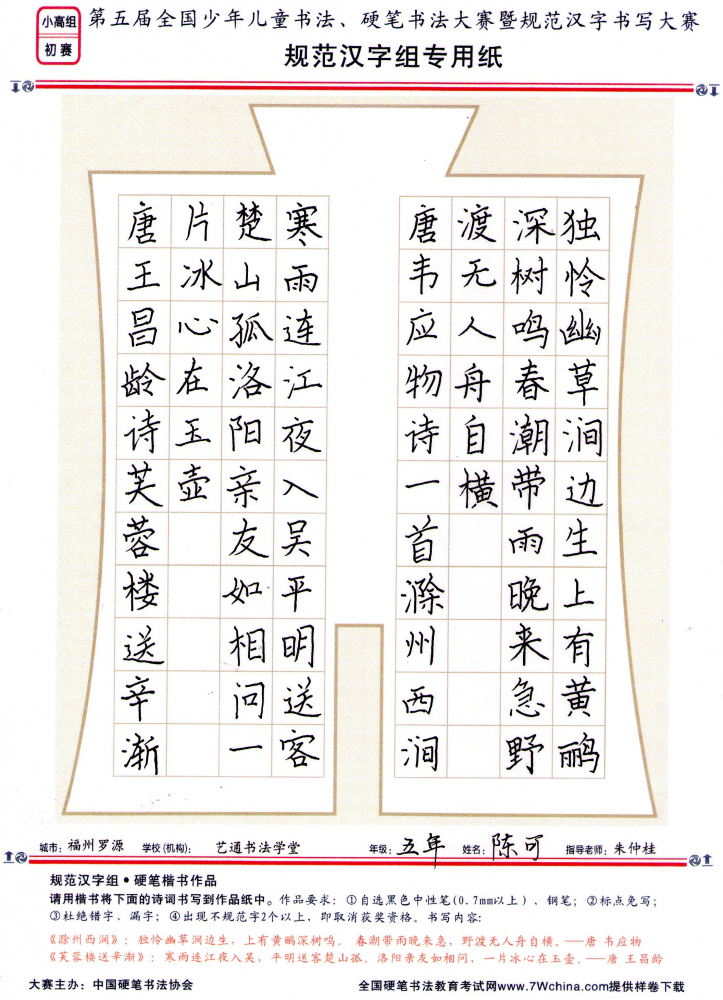 小高组
初赛
第五届全国少年儿童书法、硬笔书法大赛暨规范汉字书写大赛
规范汉字组专用纸
独怜幽草涧边生上有黄鹂
深树鸣春潮带雨晚来急野
渡无人舟自横
唐韦应物诗一首滁州西涧
寒雨连江夜入吴平明送客
楚山孤洛阳亲友如相问一
片冰心在玉壶
唐王昌龄诗芙蓉楼送辛渐
城市：福州罗源 学校(机构)： 艺通书法学堂 年级：五年 姓名：陈可 指导老师：朱仲桂
规范汉字组•硬笔楷书作品
请用楷书将下面的诗词书写到作品纸中。作品要求：①自选黑色中性笔(0.7mm以上)、钢笔；②标点免写；
③杜绝错字、漏字；④出现不规范字2个以上，即取消获奖资格。书写内容：
《滁州西涧》：独怜幽草涧边生，上有黄鹂深树鸣。春潮带雨晚来急，野渡无人舟自横。——唐 韦应物
《芙蓉楼送辛渐》：寒雨连江夜入吴，平明送客楚山孤。洛阳亲友如相问，一片冰心在玉壶。——唐 王昌龄
大赛主办：中国硬笔书法协会 全国硬笔书法教育考试网www.7Wchina.com提供样卷下载